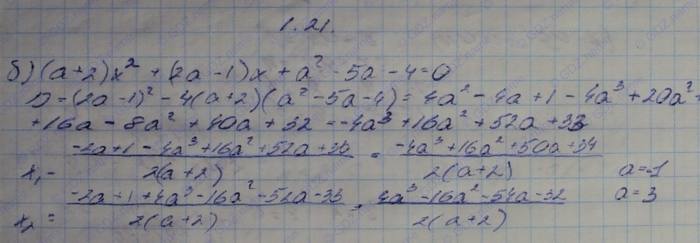 1.21.
б) (a+2)x² + (2a-1)x + a² - 5a - 4 = 0
D = (2a-1)² - 4(a+2)(a² - 5a - 4) = 4a² - 4a + 1 - 4a³ + 20a² +
+ 16a - 8a² + 40a + 32 = -4a³ + 16a² + 52a + 33
x₁ = (-2a + 1 - 4a³ + 16a² + 52a + 33) / 2(a+2) = (-4a³ + 16a² + 50a + 34) / 2(a+2) a = -1
x₂ = (-2a + 1 + 4a³ - 16a² - 52a - 33) / 2(a+2) = (4a³ - 16a² - 54a - 32) / 2(a+2) a = 3